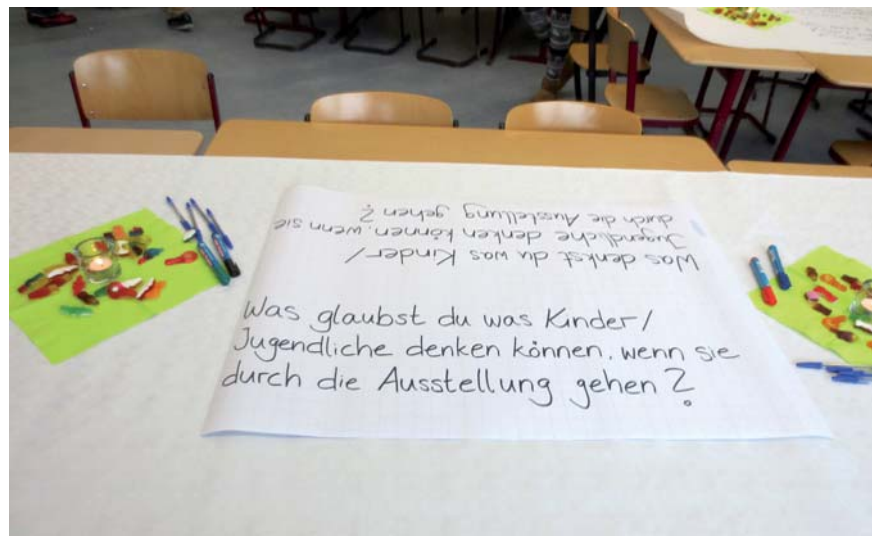 Was denkst du was Kinder/
Jugendliche denken können, wenn sie
durch die Ausstellung gehen?
Was glaubst du was Kinder/
Jugendliche denken können, wenn sie
durch die Ausstellung gehen?